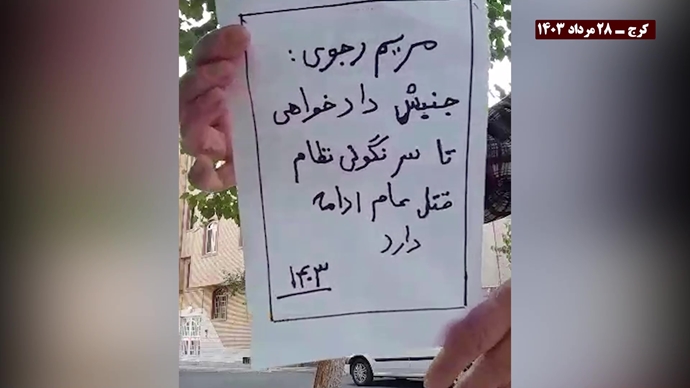 کرج ــ ۲۸ مرداد ۱۴۰۳
مریم رجوی :
جنبش دادخواهی
تا سرنگونی نظام
قتل عام ادامه
دارد
۱۴۰۳